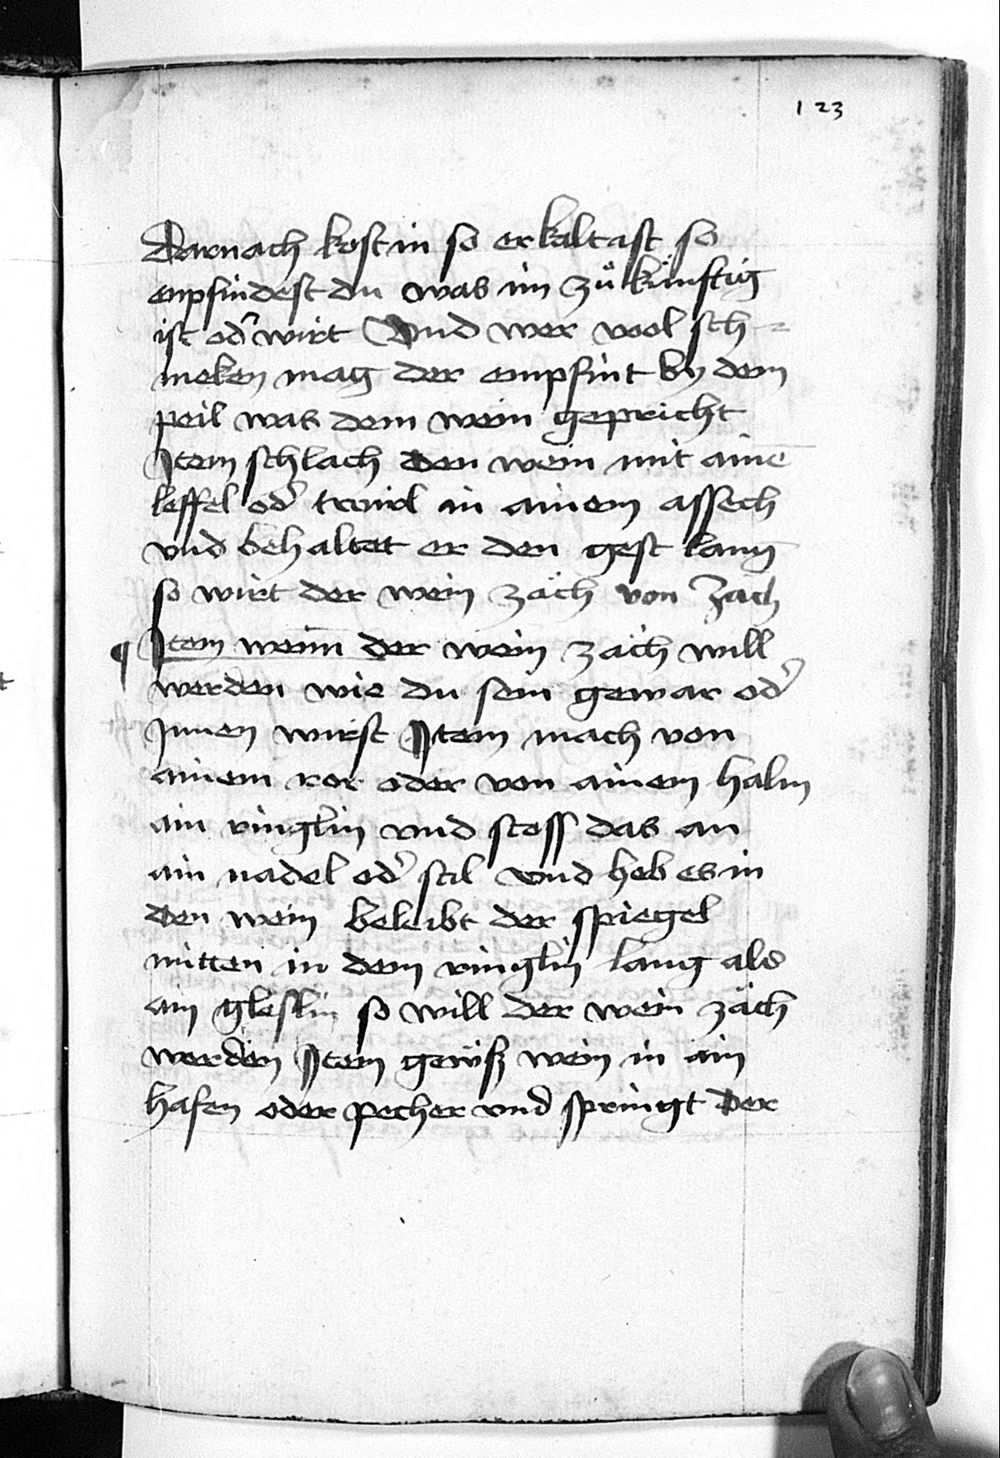 123
Darnach kost in so er kalt ist so
enpfindest du was im zů künftig
ist od͛ wirt Vnd wer wol sch=
meken mag der empfint by dem
peil was dem wein gepricht
Item schlach den wein mit ainē
leffel od͛ twirl in ainem assech
vnd behaltet er den gest lang
so wirt der wein zäch von zäch
¶ Item wenn der wein zäch will
werden wie du sein gewar od͛
Innen wirst Item mach von
ainem ror oder von ainem halm
ain ringlin vnd stoss das an
ain nadel od͛ stil vnd heb es in
den wein beleibt der spiegel
mitten in dem ringlin lang als
ain gleslin so will der wein zäch
werden Item gewß wein in ain
hafen oder pecher vnd springt der